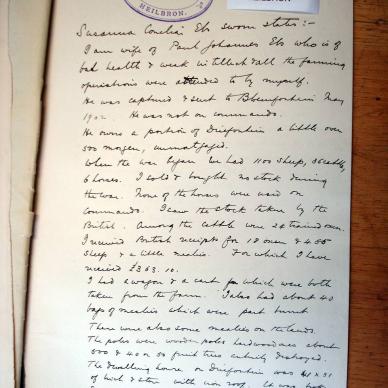 HEILBRON.
Susanna Cornelia Els sworn states :-
I am wife of Paul Johannes Els who is of
bad health & weak intellect & all the farming
operations were attended to by myself.
He was captured & sent to Bloemfontein May
1902. He was not on commando.
He owns a portion of Driefontein a little over
500 morgen, unmortgaged.
When the war began we had 1100 sheep, 36 cattle,
6 horses. I sold & bought no stock during
the war. None of the horses were used on
commando. I saw the stock taken by the
British. Among the cattle were 20 trained oxen.
I received British receipts for 18 oxen & 455
sheep & a little mealies. For which I have
received £363.10.
I had a wagon & a cart for which were both
taken from the farm. I also had about 40
bags of mealies which were part burnt
There were also some mealies on the lands.
The poles were wooden poles hardwood ones about
500 & 40 or 50 fruit trees entirely destroyed.
The dwelling house on Driefontein was 41 x 31
of brick & stone with iron roof. It was